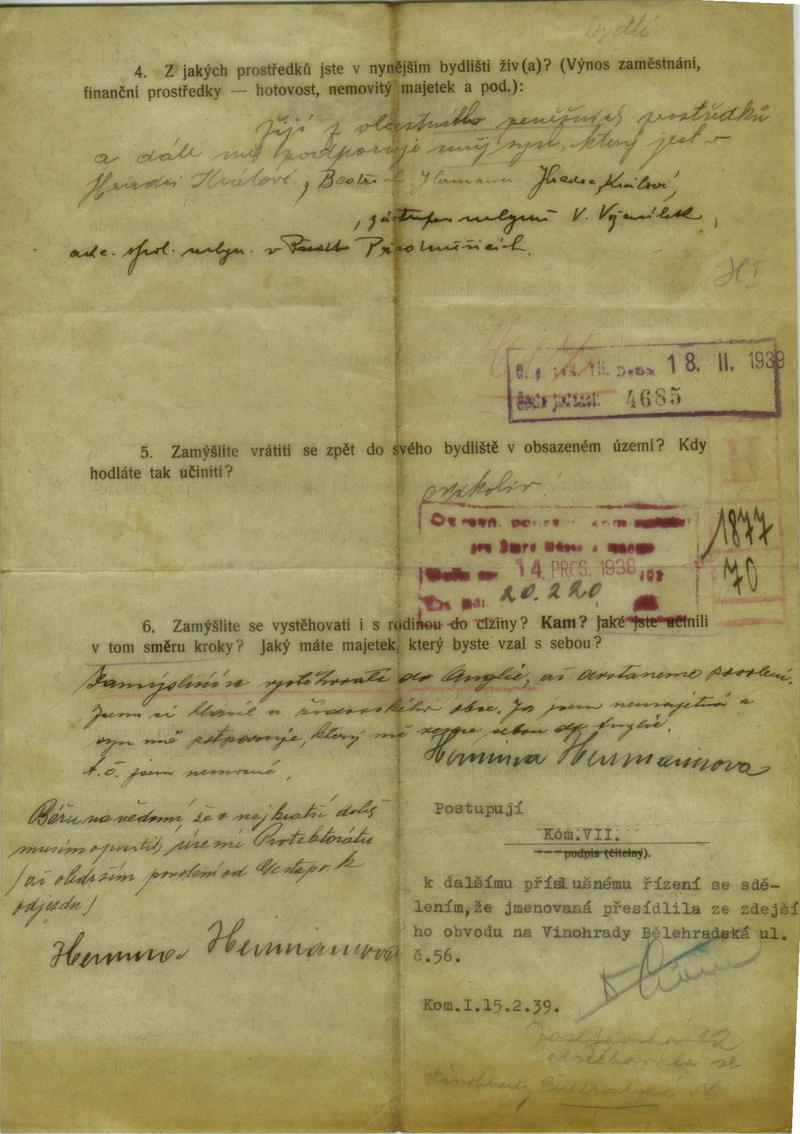 bydlí
4. Z jakých prostředků jste v nynějším bydlišti živ(a)? (Výnos zaměstnání,
finanční prostředky — hotovost, nemovitý majetek a pod.):
z vlastního peněžních prostředků
a dále mě podporuje můj syn, který jest v
Hradci Králové, Hradec Králové,
zástupce mlynů V.
spol. mlyn. v
18. II. 1939
4685
5. Zamýšlíte vrátiti se zpět do svého bydliště v obsazeném území? Kdy
hodláte tak učiniti?
H
14 PROS. 1938
20.220
1877
70
6. Zamýšlíte se vystěhovati i s rodinou do ciziny? Kam? Jaké jste učinili
v tom směru kroky? Jaký máte majetek, který byste vzal s sebou?
Zamýšlím vystěhovati do Anglie, až dostaneme povolení.
Jsem si u židovské obce. Já jsem nemajetná a
syn mě podporuje, který mě vezme sebou do Anglie.
t. č. jsem nemocná.
Hermina Herrmannova
Beru na vědomí že v nejkratší době
musím opustiti území Protektorátu
(až obdržím povolení od Gestapo k
odjezdu)
Hermina Herrmannova
Postupují
Kom.VII.
podpis (čitelný).
k dalšímu příslušnému řízení se sdě-
lením,že jmenovaná přesídlila ze zdejší
ho obvodu na Vinohrady Bělehradská ul.
č.56.
Kom.I.15.2.39.
12
odstěhovala se
Vinohrady Bělehradská 56